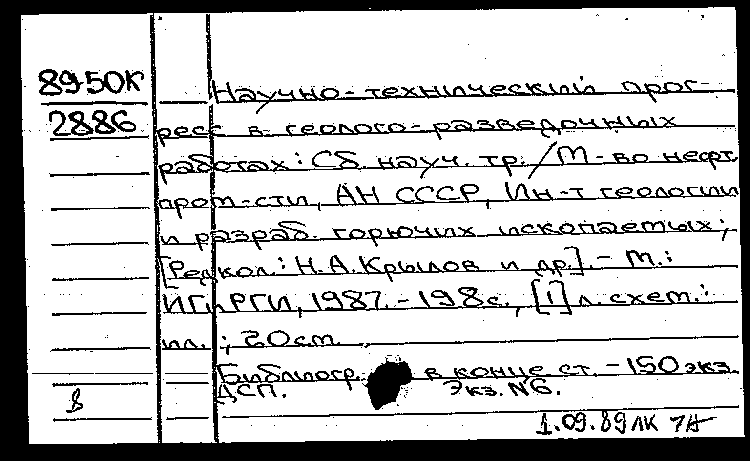 8950К
Научно-технический прог-
2886
ресс в геолого-разведочных
работах: Сб. науч. тр. / М-во нефт.
пром-сти, АН СССР, Ин-т геологии
и разраб. горючих ископаемых;
[Редкол.: Н.А.Крылов и др.]. - М.:
ИГиРГИ, 1987. - 198 с., [1] л. схем.:
ил. ; 20 см.
Библиогр. в конце ст. - 150 экз.
ДСП. Экз. №6.
В
1.09.89 ЛК